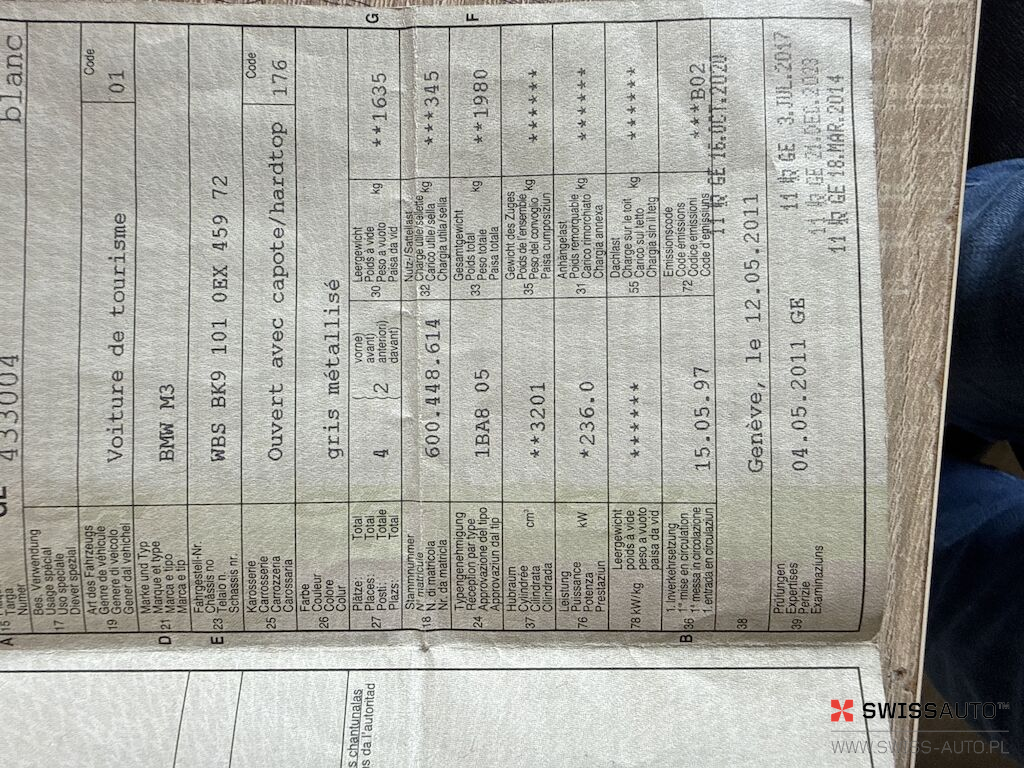 A
15
Targa
Numer
GE 433004
blanc
Bes. Verwendung
Usage spécial
17 Uso speciale
Diever spezial
Art des Fahrzeugs
Genre de véhicule
19 Genere di veicolo
Gener dal vehichel
Voiture de tourisme
Code
01
Marke und Typ
Marque et type
D 21 Marca e tipo
Marca e tip
BMW M3
Fahrgestell-Nr.
Châssis no
E 23 Telaio n.
Schassis nr.
WBS BK9 101 0EX 459 72
Karosserie
Carrosserie
25 Carrozzeria
Carossaria
Ouvert avec capote/hardtop
Code
176
Farbe
Couleur
26 Colore
Colur
gris métallisé
Plätze: Total
Places: Total
27 Posti: Totale
Plazs: Total
4
2
vorne)
avant)
anteriori)
davant)
Leergewicht
Poids à vide
30 Peso a vuoto
Paisa da vid
kg
**1635
G
Stammnummer
N° matricule
18 N. di matricola
Nr. da matricla
600.448.614
Nutz-/Sattellast
Charge utile/sellette
32 Carico utile/sella
Chargia utila/sella
kg
***345
Typengenehmigung
Réception par type
24 Approvazione del tipo
Approvaziun dal tip
1BA8 05
Gesamtgewicht
Poids total
33 Peso totale
Paisa totala
kg
**1980
F
Hubraum
Cylindrée
37 Cilindrata
Cilindrada
cm³
**3201
Gewicht des Zuges
Poids de l'ensemble
35 Peso del convoglio
Paisa cumposiziun
kg
******
Leistung
Puissance
76 Potenza
Prestaziun
kW
*236.0
Anhängelast
Poids remorquable
31 Carico rimorchiato
Chargia annexa
kg
******
78 kW/kg
Leergewicht
poids à vide
peso a vuoto
paisa da vid
******
Dachlast
Charge sur le toit
55 Carico sul tetto
Chargia sin il tetg
kg
******
1. Inverkehrsetzung
1re mise en circulation
B 36 1a messa in circolazione
1. entrada en circulaziun
15.05.97
Emissionscode
Code émissions
72 Codice emissioni
Code d'emissiuns
***B02
38
Genève, le 12.05.2011
11 GE 16.OCT.2020
Prüfungen
Expertises
39 Perizie
Examinaziuns
04.05.2011 GE
11 GE 3.JUL.2017
11 GE 21.DEC.2023
11 GE 18.MAR.2014
s chantunalas
s da l'autoritad
SWISSAUTO™
WWW.SWISS-AUTO.PL